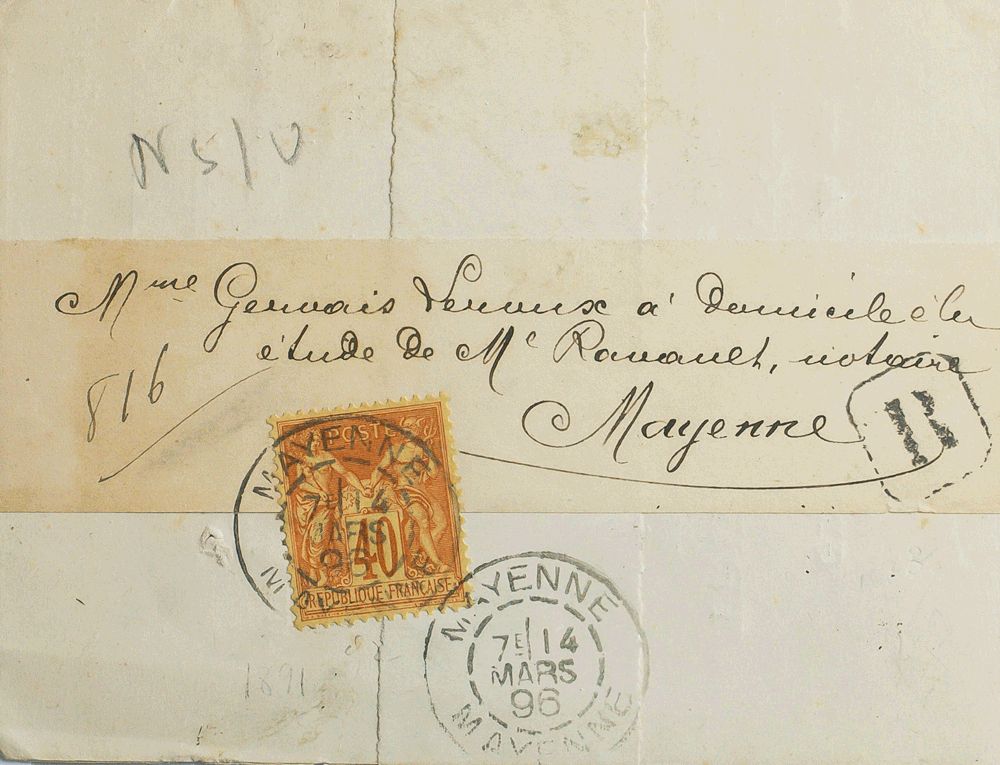 N 5/0
Mme Gervais Leroux à Domicile élu
étude de Me Ravault, notaire
Mayenne
816
R
POSTES
40
REPUBLIQUE FRANÇAISE
MAYENNE
7E 14
MARS
96
MAYENNE
7E 14
MARS
96
MAYENNE
1891